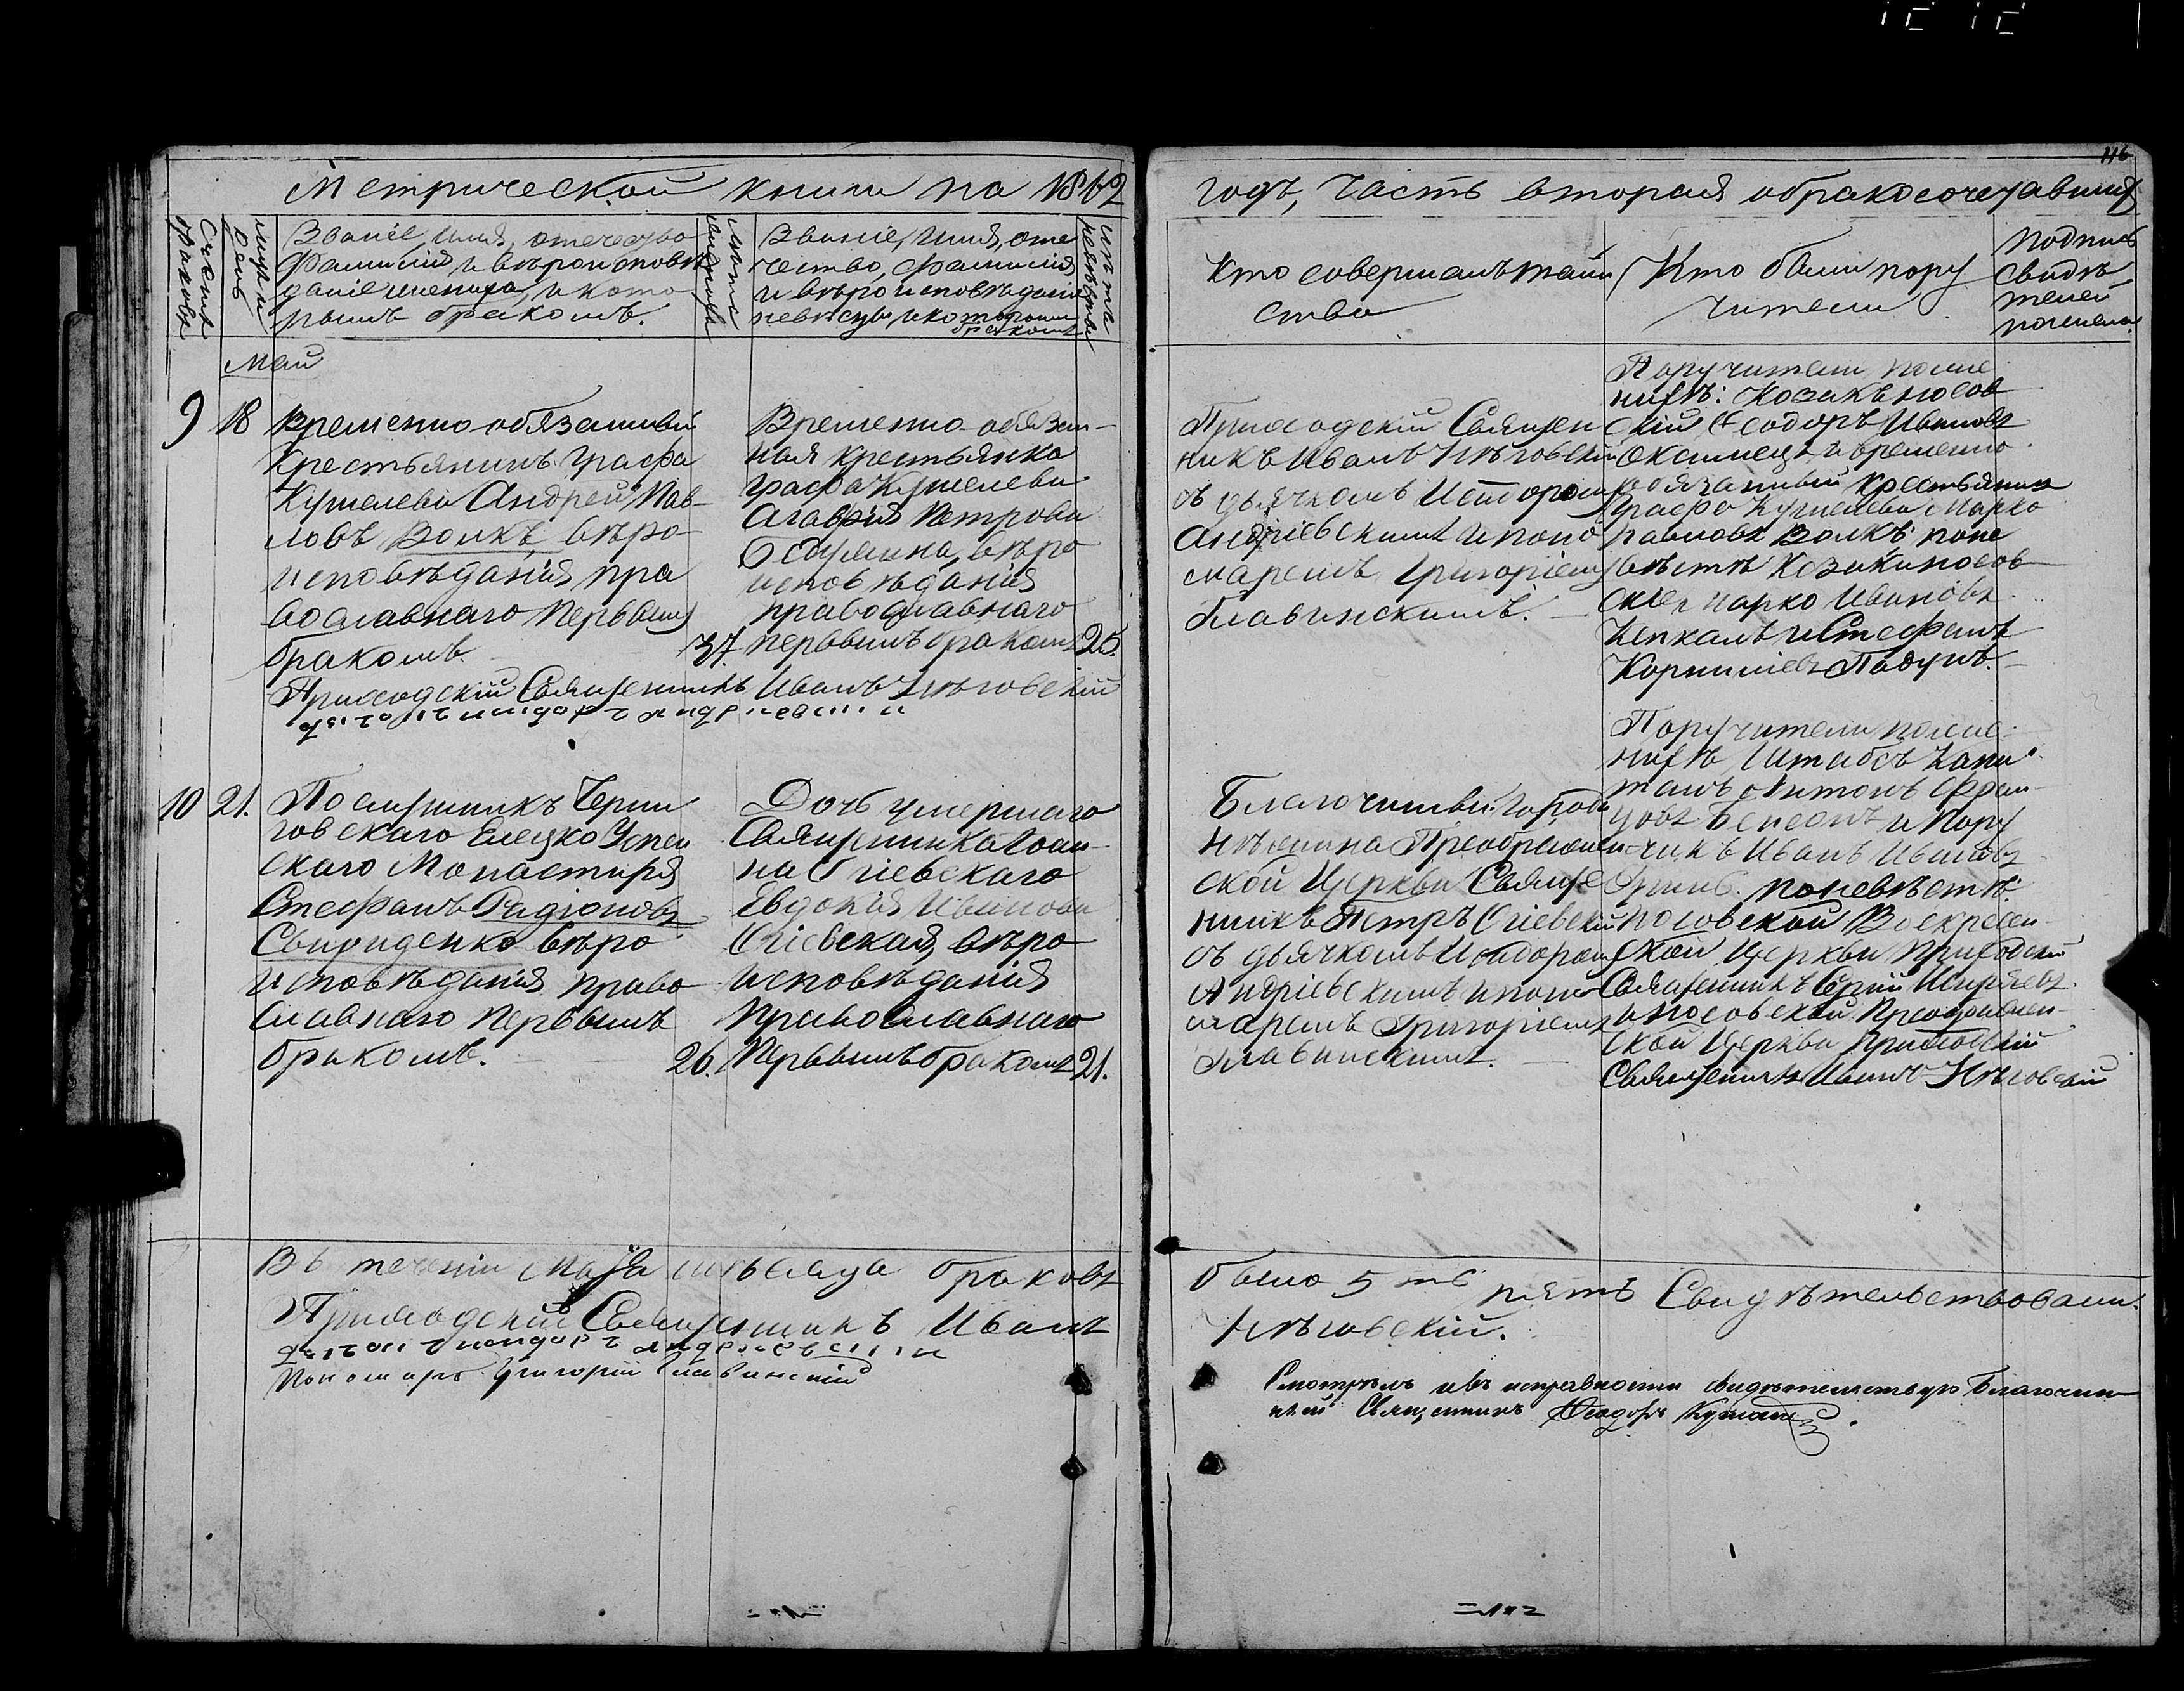 116
Метрической книги на 1862
годъ, часть вторая о бракосочетавших
Счетъ браковъ
Мѣсяц и день
Званіе, имя, отечество
фамилія и вѣроисповѣ
даніе жениха, и кото
рымъ бракомъ.
Лѣта жениха
Званіе, имя, оте
чество, фамилія
и вѣроисповѣданіе
невѣсты, и которымъ
бракомъ
Лѣта невѣсты
Кто совершалъ таин
ство
Кто были пору
чители
Подпись
свидѣ
телей
по желан.
Май
9
18
Временно-обязанный
Крестьянинъ Графа
Кушелева Андрей Пав-
ловъ Волкъ, вѣро-
исповѣданія пра
вославнаго первымъ
бракомъ
37.
Временно-обязан-
ная крестьянка
Графа Кушелева
Агафія Петрова
вѣро
исповѣданія
православнаго
первымъ бракомъ
25.
Приходскій Священникъ Иванъ Нѣговскій
дьячокъ Исидоръ Андріевскій
Приходскій Священ
никъ Иванъ Нѣговскій
съ дьячкомъ Исидоромъ
Андріевскимъ и поно
маремъ Григоріемъ
Главинскимъ.
Поручители по же
нихѣ: Козакъ носов
скій Ѳеодоръ Ивановъ
и временно
обязанный крестьянинъ
графа Кушелева Марко
Павловъ Волкъ: по не
вѣстѣ Козаки носов
скіе Марко Ивановъ
и Стефанъ
Корниліевъ Падунъ.
10
21.
Послушникъ Черни
говскаго Елецко Успен
скаго Монастиря
Стефанъ Радіоновъ
Свириденко вѣро
исповѣданія право
славнаго первымъ
бракомъ.
26.
Дочь умершаго
Священника Іоан-
на Огіевскаго
Евдокія Иванова
Огіевская, вѣро
исповѣданія
Православнаго
Первымъ бракомъ
21.
Благочинный города
Нѣжина Преображен
ской Церкви Священ
никъ Петръ Огіевскій
съ дьячкомъ Исидоромъ
Андріевскимъ и поно
маремъ Григоріемъ
Главинскимъ.
Поручители по же
нихѣ Штабсъ Капи
танъ Антонъ Фран-
цовъ и Пору
чикъ Иванъ Ивановъ
по невѣстѣ:
носовской Воскресен
ской Церкви Приходскій
Священникъ Сергій
и носовской Преображен-
ской Церкви Приходскій
Священникъ Иванъ Нѣговскій
Въ теченіи Мая мѣсяца браковъ
было 5 ть пять Свидѣтельствовали:
Приходскій Священникъ Иванъ
Нѣговскій.
дьячокъ Исидоръ Андріевскій
Пономарь Григорій Главинскій
Смотрѣлъ и въ исправности свидѣтельствую Благочин
ный Священникъ Ѳеодоръ